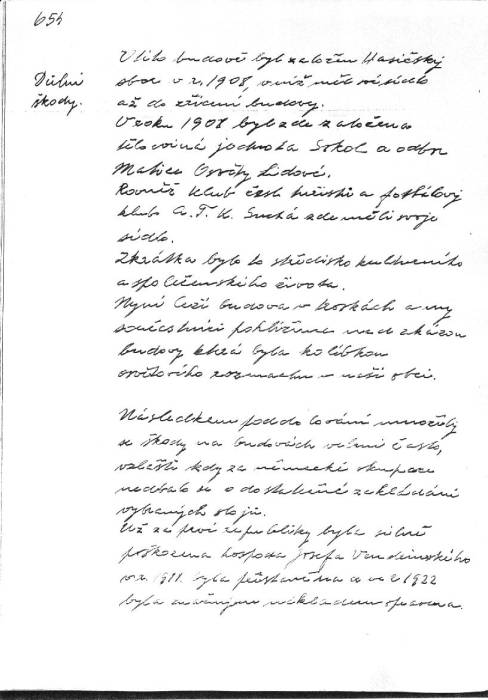 654
Důlní
škody.
V této budově byl založen Hasičský
sbor v r. 1908, v níž měl své sídlo
až do zřícení budovy.
V roku 1908 byl zde založena
tělocvičná jednota Sokol a odbor
Matice Osvěty Lidové.
Rovněž klub česk. turistů a fotbalový
klub A.F.K. Suchá zde měli svoje
sídlo.
Zkrátka bylo to středisko kulturního
a společenského života.
Nyní leží budova v troskách a my
současníci pohlížíme nad zkázou
budovy která byla kolébkou
osvětového rozmachu v naší obci.
Následkem poddolování množily
se škody na budovách velmi často,
zvláště kdy za německé okupace
nedbalo se o dostatečné zakládání
vybraných slojí.
Už za prvé republiky byla silně
poškozena hospoda Josefa
v r. 1911. byla přistavěna a v r. 1922
byla nákladem opravena.